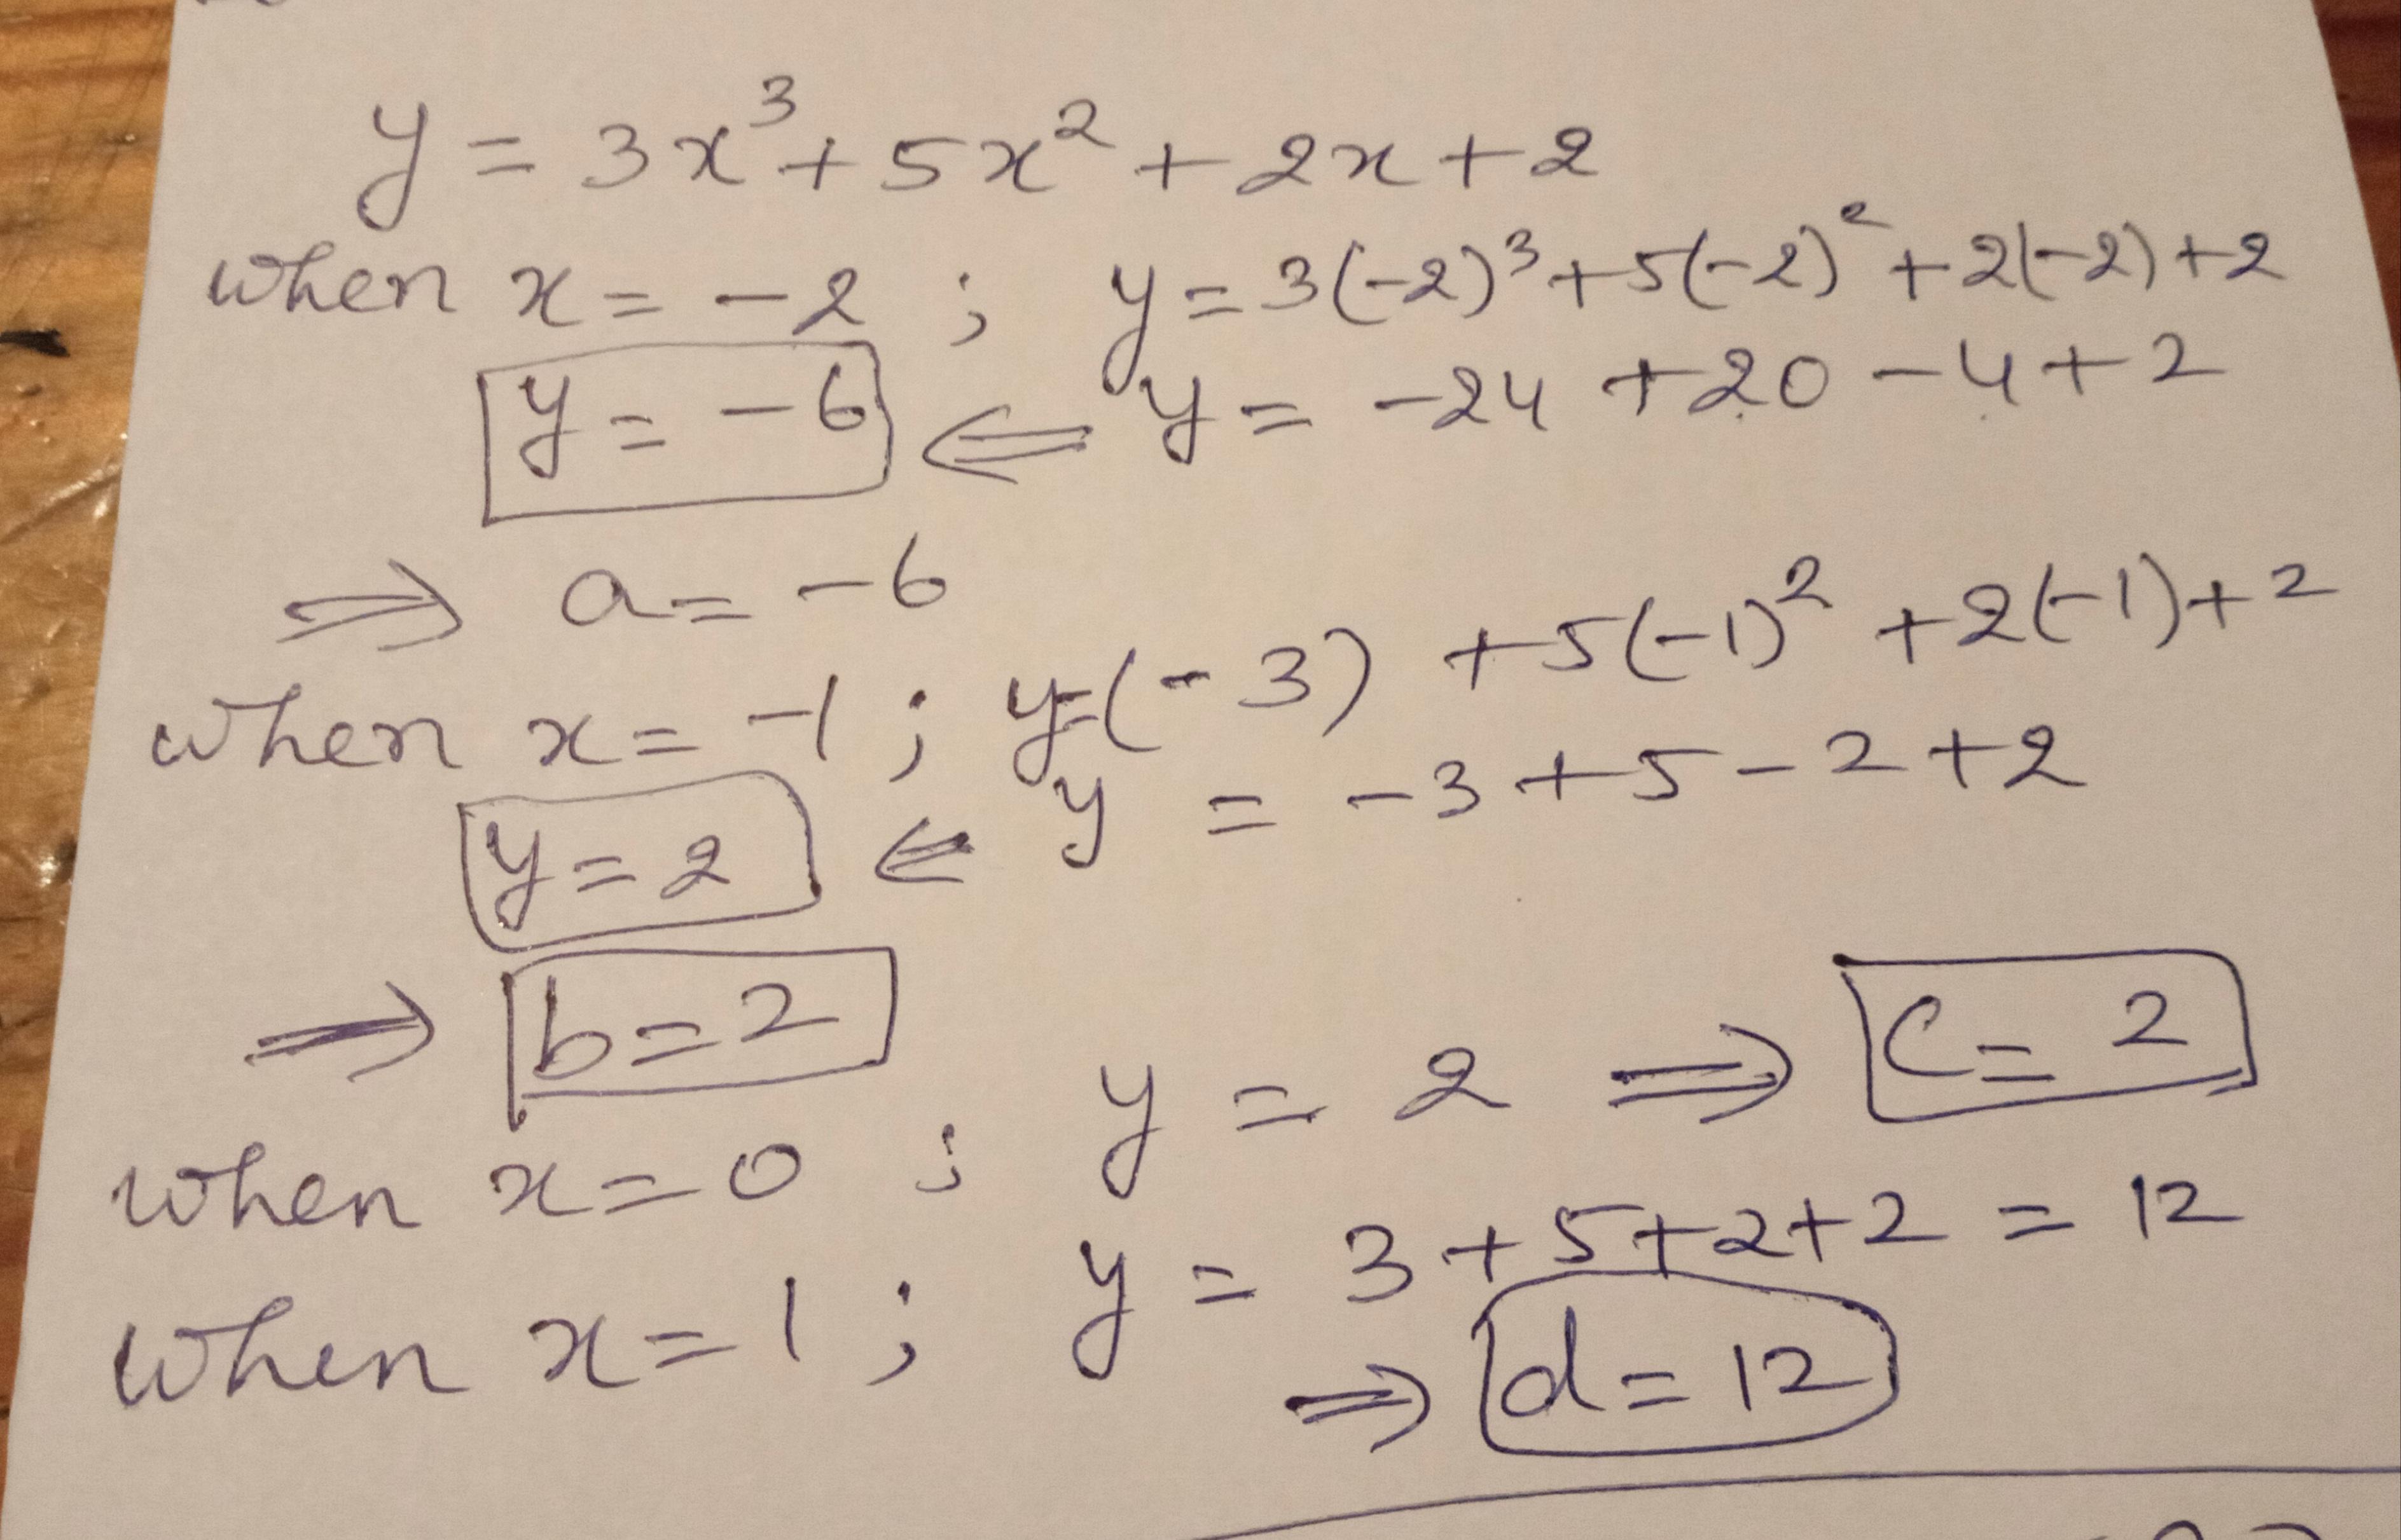 y = 3x³ + 5x² + 2x + 2
when x = -2 ; y = 3(-2)³ + 5(-2)² + 2(-2) + 2
y = -6 ⇐ y = -24 + 20 - 4 + 2
⇒ a = -6
when x = -1 ; y = (-3) + 5(-1)² + 2(-1) + 2
y = 2 ⇐ y = -3 + 5 - 2 + 2
⇒ b = 2
when x = 0 ; y = 2 ⇒ c = 2
when x = 1 ; y = 3 + 5 + 2 + 2 = 12
⇒ d = 12